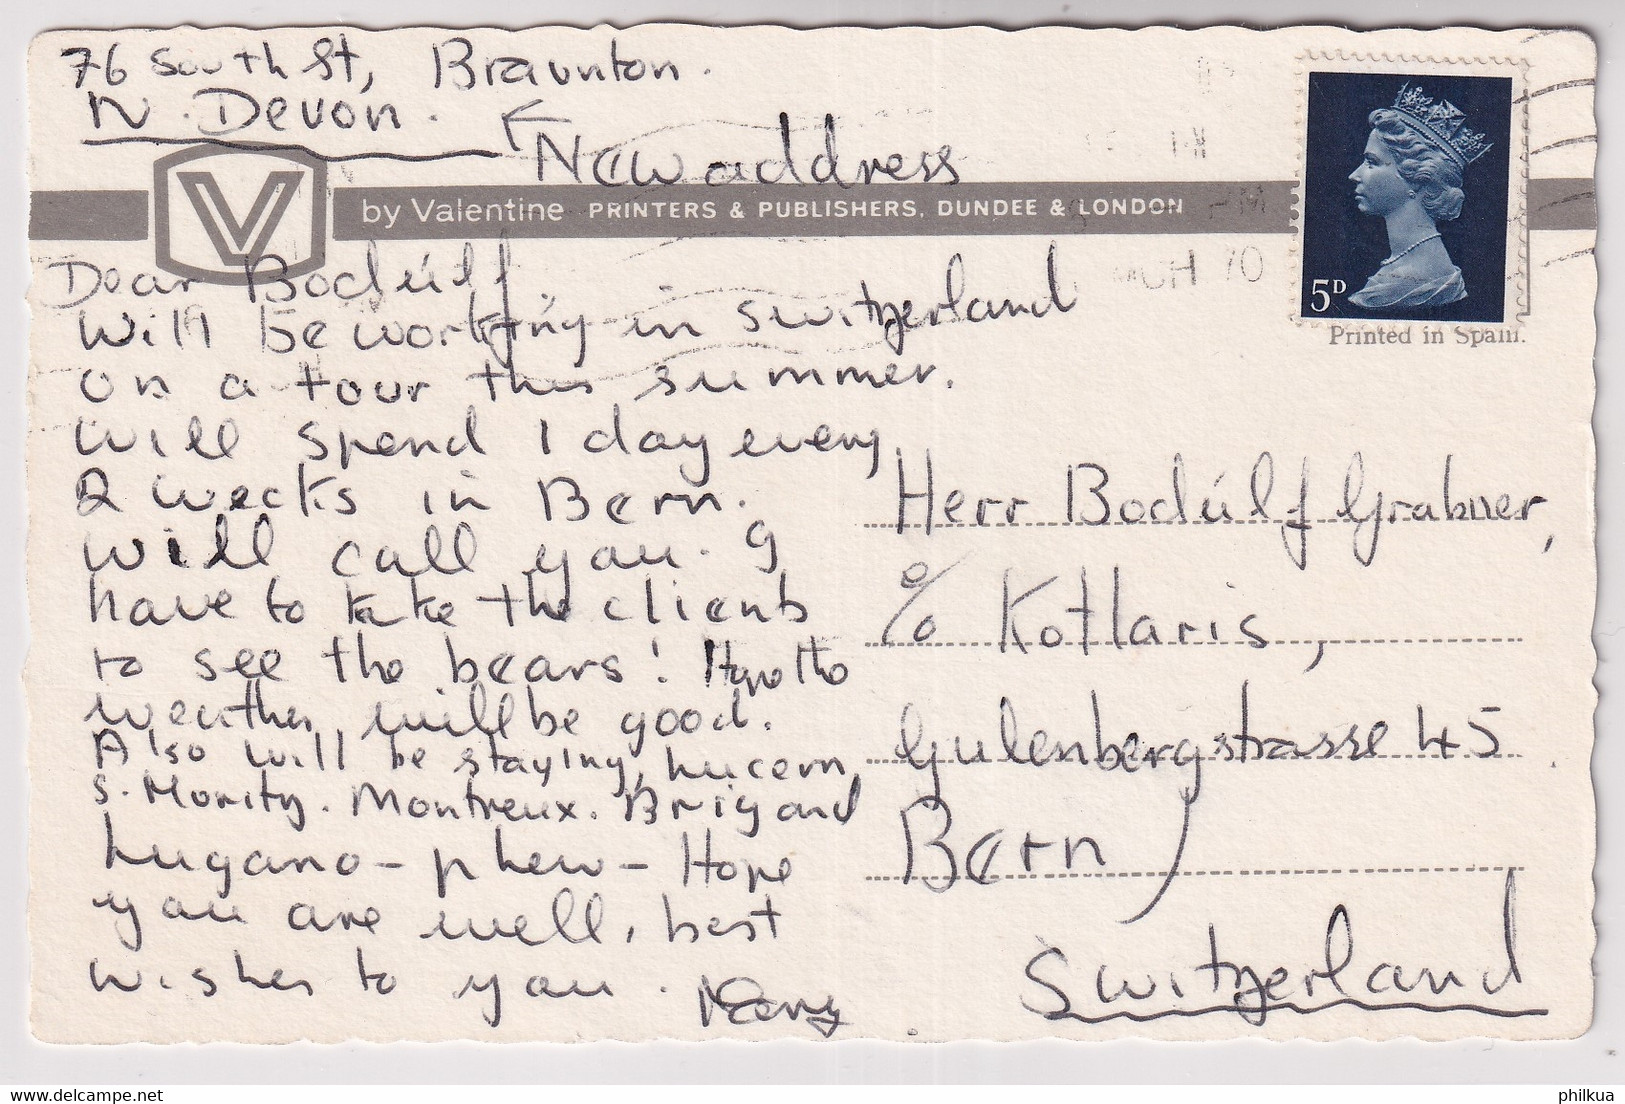 76 South St, Braunton.
N. Devon.
New address
V
by Valentine PRINTERS & PUBLISHERS, DUNDEE & LONDON
PM
MCH 70
5D
Printed in Spain.
Dear Bodúlf,
Will be working in Switzerland
on a tour this summer.
Will spend 1 day every
2 weeks in Bern.
Will call you. I
have to take the clients
to see the bears! Hope the
weather will be good.
Also will be staying, Lucern,
S. Moritz. Montreux. Brig and
Lugano - phew - Hope
you are well, best
wishes to you.
Herr Bodúlf Grabner,
c/o Kotlaris,
Gulenbergstrasse 45
Bern
Switzerland
delcampe.net
philkua